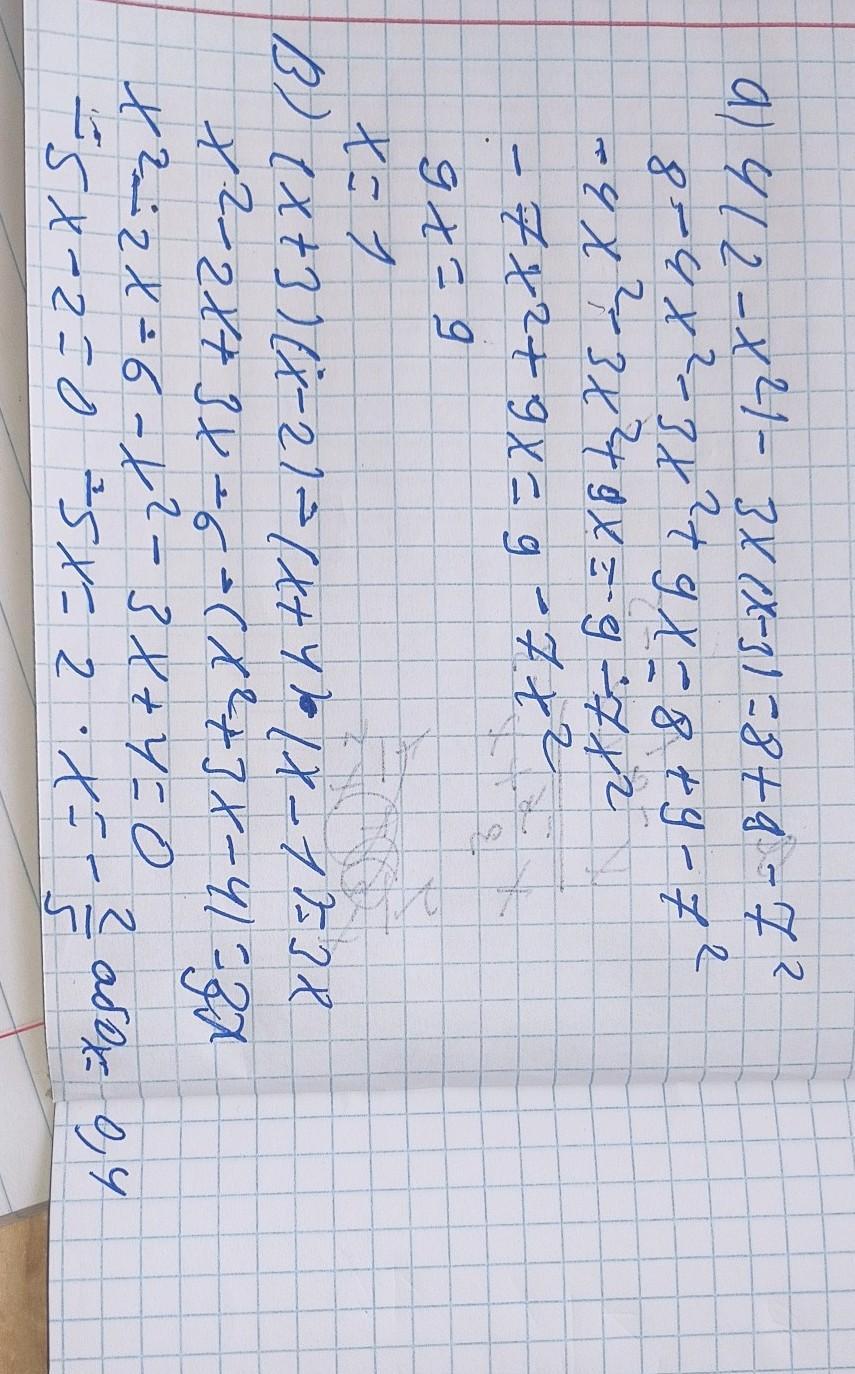 а) 4(2-x²)-3x(x-3)=8+9-7²
8-4x²-3x²+9x=8+9-7²
-4x²-3x²+9x=9-7x²
-7x²+9x=9-7x²
9x=9
x=1
В) (x+3)(x-2)-(x+4)·(x-1)=3x
x²-2x+3x-6-(x²+3x-4)=3x
x²-2x-6-x²-3x+4=0
-5x-2=0 -5x=2 · x=-2/5 або x= 0,4